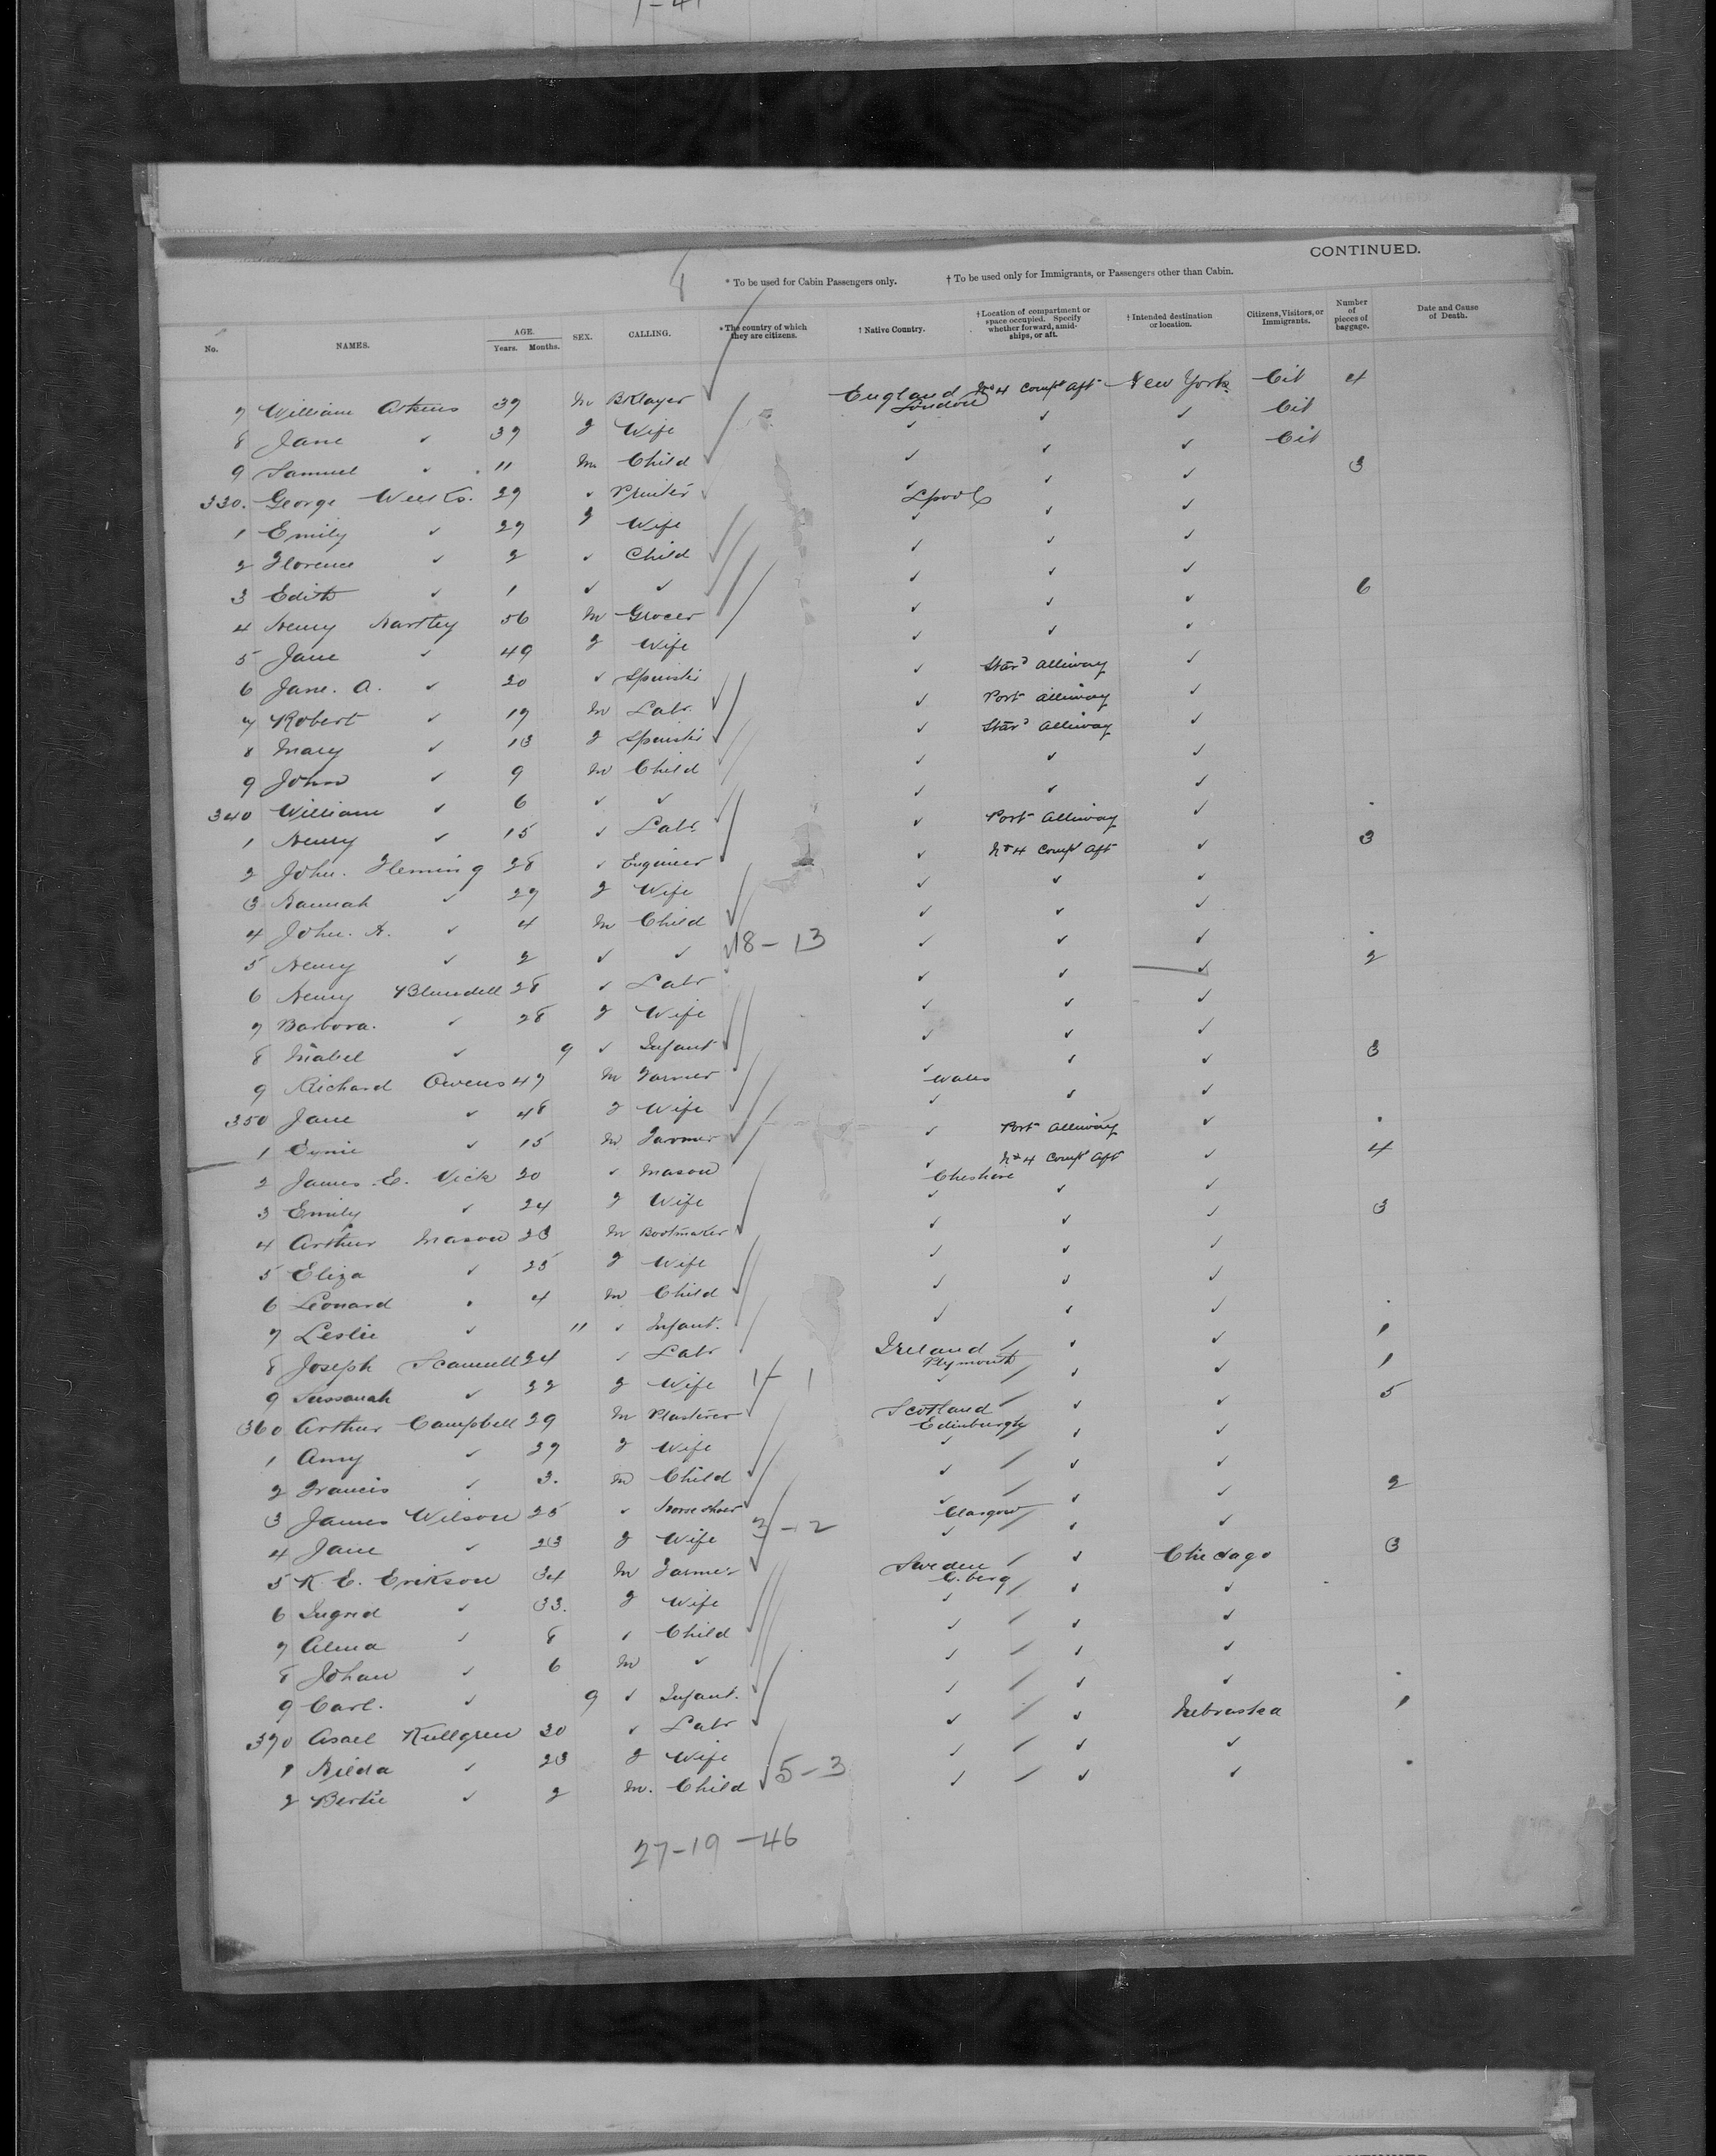 1-41
CONTINUED.
* To be used for Cabin Passengers only. † To be used only for Immigrants, or Passengers other than Cabin.
No. NAMES. AGE. Years. Months. SEX. CALLING. * The country of which they are citizens. † Native Country. † Location of compartment or space occupied. Specify whether forward, amidships, or aft. † Intended destination or location. Citizens, Visitors, or Immigrants. Number of pieces of baggage. Date and Cause of Death.
7 William Atkins 39 m BKlayer England London No 4 Compt Aft New York Cit 4
8 Jane ✓ 39 f Wife ✓ ✓ ✓ Cit
9 Samuel ✓ 11 m Child ✓ ✓ ✓ Cit
330. George Weeks. 29 ✓ Printer Lpool ✓ ✓ 3
1 Emily ✓ 29 f Wife ✓ ✓ ✓
2 Florence ✓ 2 ✓ Child ✓ ✓ ✓
3 Edith ✓ 1 ✓ ✓ ✓ ✓ ✓
4 Henry Hartley 56 m Grocer ✓ ✓ ✓ 6
5 Jane ✓ 49 f Wife ✓ ✓ ✓
6 Jane. A. ✓ 20 ✓ Spinster ✓ Stard Alleway ✓
7 Robert ✓ 19 m Labr. ✓ Port Alleway ✓
8 Mary ✓ 13 f Spinster ✓ Stard Alleway ✓
9 John ✓ 9 m Child ✓ ✓ ✓
340 William ✓ 6 ✓ ✓ ✓ ✓ ✓
1 Henry ✓ 15 ✓ Labr. ✓ Port Alleway ✓
2 John. Fleming 28 ✓ Engineer ✓ No 4 Compt Aft ✓ 3
3 Hannah ✓ 27 f Wife ✓ ✓ ✓
4 John. H. ✓ 4 m Child ✓ ✓ ✓
5 Henry ✓ 2 ✓ ✓ 18-13 ✓ ✓ ✓
6 Henry Blundell 28 ✓ Labr ✓ ✓ ✓ 2
7 Barbora. ✓ 28 f Wife ✓ ✓ ✓
8 Mabel ✓ 9 ✓ Infant ✓ ✓ ✓
9 Richard Owens 47 m Farmer Wales ✓ ✓ 3
350 Jane ✓ 48 f Wife ✓ ✓ ✓
1 ✓ 15 m Farmer ✓ Port Alleway ✓
2 James. E. Vick 20 ✓ Mason Cheshire No 4 Compt Aft ✓ 4
3 Emily ✓ 24 f Wife ✓ ✓ ✓
4 Arthur Mason 23 m Bootmaker ✓ ✓ ✓ 3
5 Eliza ✓ 25 f Wife ✓ ✓ ✓
6 Leonard ✓ 4 m Child ✓ ✓ ✓
7 Leslie ✓ 11 ✓ Infant. ✓ ✓ ✓
8 Joseph Scannell 24 ✓ Labr Ireland Plymouth ✓ ✓ 1
9 Sussanah ✓ 22 f Wife 1-1 ✓ ✓ ✓ 1
360 Arthur Campbell 29 m Plasterer Scotland Edinburgh ✓ ✓ 5
1 Amy ✓ 27 f Wife ✓ ✓ ✓
2 Francis ✓ 3. m Child ✓ ✓ ✓
3 James Wilson 25 ✓ horse shoer Glasgow ✓ ✓ 2
4 Jane ✓ 23 f Wife 3-2 ✓ ✓ ✓
5 K. E. Erikson 34 m Farmer Sweden G. berg ✓ Chicago 3
6 Ingrid ✓ 33. f Wife ✓ ✓ ✓
7 Alma ✓ 8 ✓ Child ✓ ✓ ✓
8 Johan ✓ 6 m ✓ ✓ ✓ ✓
9 Carl. ✓ 9 ✓ Infant. ✓ ✓ ✓
370 Axel Kullgren 30 ✓ Labr ✓ ✓ Nebraska 1
1 Hilda ✓ 23 f Wife ✓ ✓ ✓
2 Bertie ✓ 2 m. Child 5-3 ✓ ✓ ✓
27-19-46